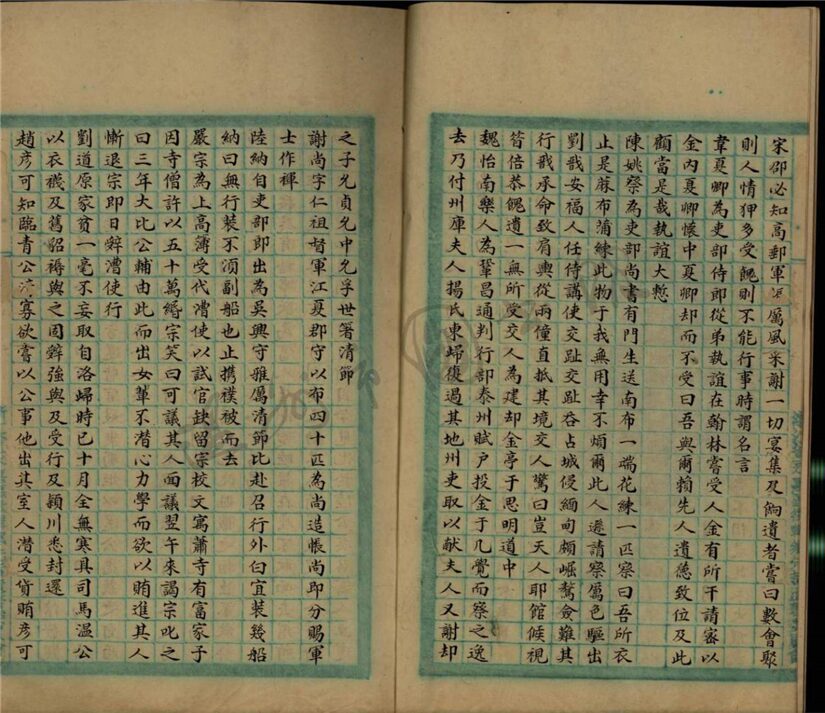 宋邵必知高郵軍以厲風采謝一切宴集及餉遺者嘗曰數會聚
則人情狎多受餽則不能行事時謂名言
韋夏卿為吏部侍郎從弟執誼在翰林嘗受人金有所干請密以
金內夏卿懷中夏卿却而不受曰吾與爾賴先人遺悳致位及此
顧當是哉執誼大慙
陳姚察為吏部尚書有門生送南布一端花練一匹察曰吾所衣
止是麻布蒲練此物于我無用幸不煩爾此人遜請察厲色驅出
劉戩安福人任侍講使交趾交趾吞占城侵緬甸頗崛驁僉難其
行戩承命致肩輿從兩僮直抵其境交人驚曰豈天人耶館候視
筲倍恭餽遺一無所受交人為建却金亭于思明道中
魏怡南樂人為鞏昌通判行部泰州賦戶投金于几覺而察之逸
去乃付州庫夫人揚氏東婦復過其地州吏取以献夫人又謝却
之子允貞允中允孚世箸清節
謝尚字仁祖督軍江夏郡守以布四十匹為尚造帳尚即分賜軍
士作褌
陸納自吏部郎出為吳興守雅厲清節比赴召行外白宜裝幾船
納曰無行裝不湏副船也止携襆被而去
嚴宗為上高薄受代漕使以試官缺留宗校文寓蕭寺有富家子
因寺僧許以五十萬緡宗笑曰可議其人面議翌午來謁宗叱之
曰三年大比公輔由此而出女輩不潜心力學而欲以賄進其人
慚退宗即日辤漕使行
劉道原家貧一毫不妄取自洛婦時已十月全無寒具司馬温公
以衣襪及舊貂褥與之固辤強與及受行及潁川悉封還
趙彥可知臨青公清寡欲嘗以公事他出其室人潜受貨賄彥可